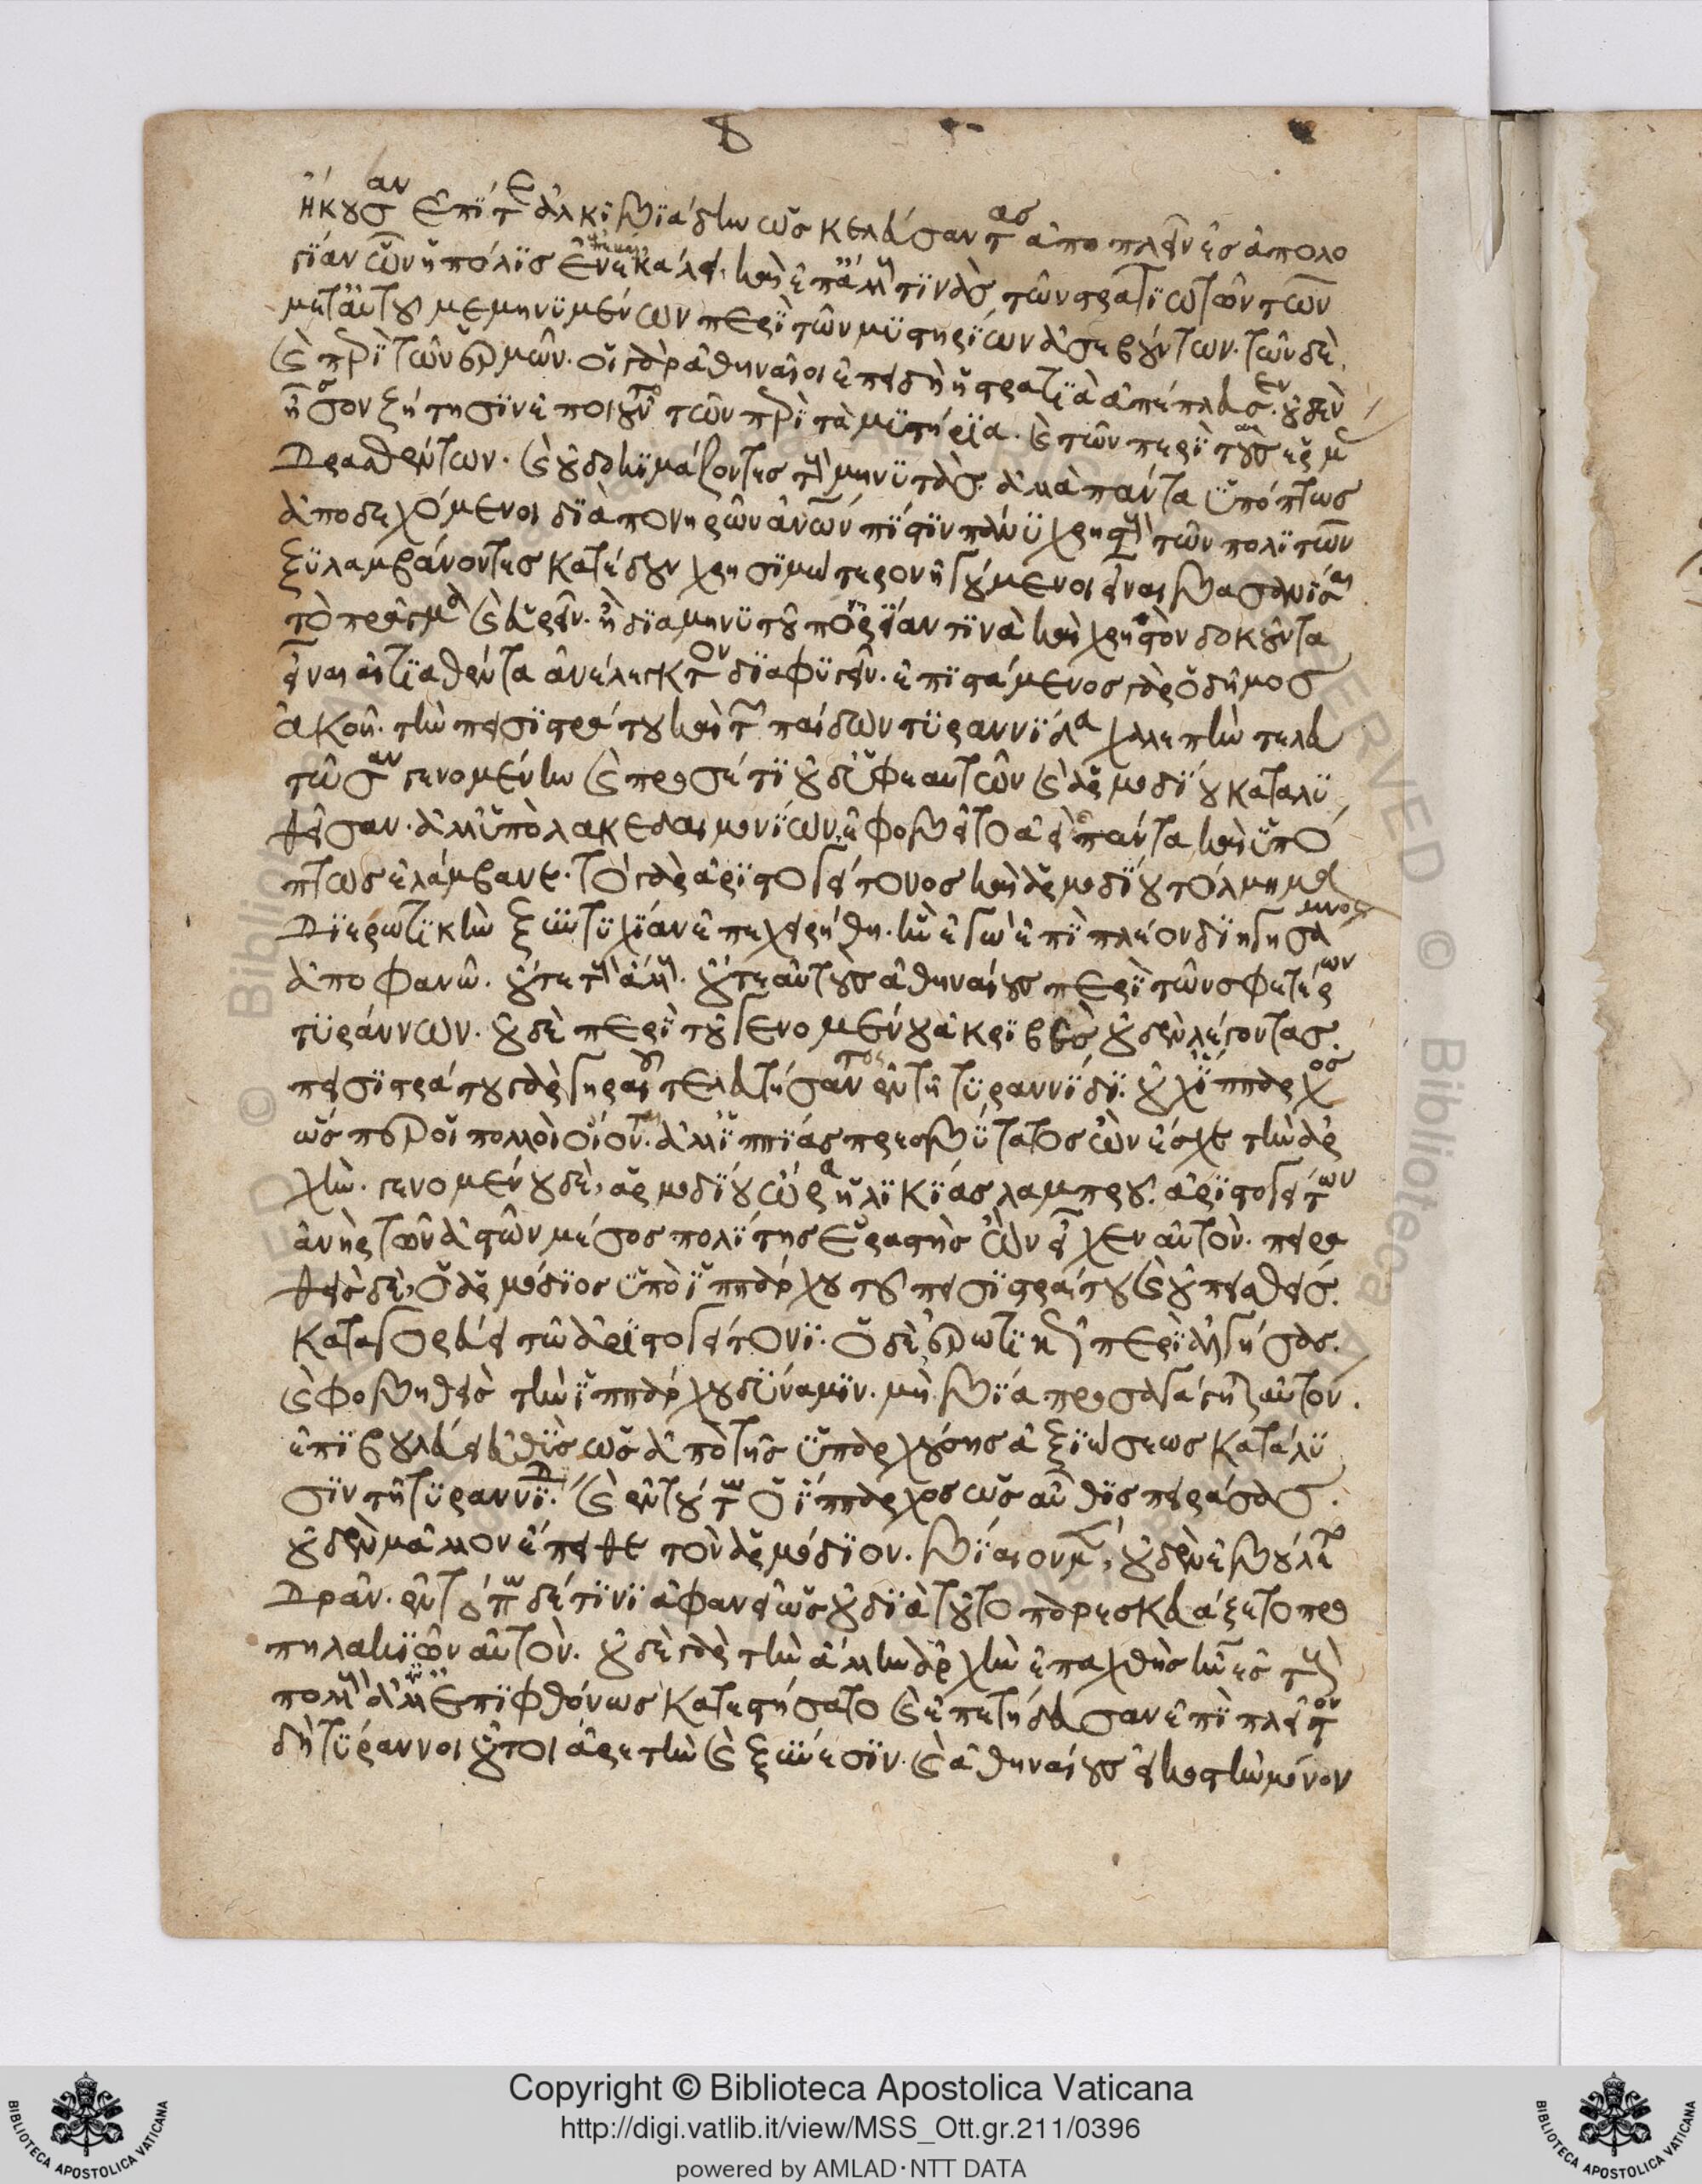 ἥκουσαν ἐπί τε ἀλκιβϊάδην ὡς κελεύσαντας ἀποπλεῖν ἐς ἀπολο
γίαν ὧν ἡ πόλϊς ἐνεκάλει, καὶ ἐπ' ἄλλους τινὰς τῶν στρατϊωτῶν τῶν
μετ' αὐτοῦ μεμηνϋμένων περὶ τῶν μϋστηρίων ἀσεβούντων. τῶν δὲ
καὶ περὶ τῶν ἑρμῶν. οἱ γὰρ ἀθηναῖοι ἐπειδὴ ἡ στρατϊὰ ἀπέπλευσεν. οὐδὲν
ἧσσον ζήτησϊν ἐποιοῦντο τῶν περὶ τὰ μϋστήρϊα. καὶ τῶν περὶ τοὺς ἑρμ
δρασθέντων. καὶ οὐ δοκϊμάζοντες τοὺς μηνϋτὰς. ἀλλὰ πάντα ὑπόπτως
ἀποδεχόμενοι δϊὰ πονηρῶν ἀνων πίστϊν πάνϋ χρηστοὺς τῶν πολϊτῶν
ξϋλαμβάνοντες κατέδουν χρησϊμώτερον ἡγούμενοι εἶναι βασανίσαι
τὸ πρᾶγμα καὶ εὑρεῖν. ἢ δϊα μηνϋτοῦ πονηρίαν τϊνὰ καὶ χρηστὸν δοκοῦντα
εἶναι αἰτϊαθέντα ἀνέλεγκτον δϊαφϋγεῖν. ἐπϊστάμενος γὰρ ὁ δῆμος
ἀκοῇ. τὴν πεισϊστράτου καὶ τῶν παίδων τϋραννίδα χαλεπὴν τελευ
τῶσαν γενομένην καὶ προσέτϊ οὐδ' ὑφ' ἑαυτῶν καὶ ἁρμοδίου καταλϋ
θεῖσαν. ἀλλ' ὑπὸ λακεδαιμονίων. ἐφοβεῖτο ἀεὶ πάντα καὶ ὑπό
πτως ἐλάμβανε. τὸ γὰρ ἀρϊστογείτονος καὶ ἁρμοδίου τόλμημα
δϊ' ἐρωτϊκὴν ξυντϋχίαν ἐπεχειρήθη. ἣν ἐγὼ ἐπὶ πλέον δϊηγησάμενος
ἀποφανῶ. οὔτε τοὺς ἄλλους. οὔτε αὐτοὺς ἀθηναίους περὶ τῶν σφετέρων
τϋράννων. οὐδὲ περὶ τοῦ γενομένου ἀκρϊβὲς οὐδὲν λέγοντας.
πεισϊστράτου γὰρ γηραιοῦ τελευτήσαντος ἐν τῇ τϋραννίδϊ. οὐχ ἵππαρχος
ὥσπερ οἱ πολλοὶ οἴονται. ἀλλ' ἱππίας πρεσβύτατος ὢν ἔσχε τὴν ἀρ
χὴν. γενομένου δὲ, ἁρμοδίου ὥρα ἡλϊκίας λαμπροῦ. ἀρϊστογείτων
ἀνὴρ τῶν ἀστῶν μέσος πολίτης ἐραστὴς ὢν εἶχεν αὐτὸν. πειρα
θεὶς δὲ, ὁ ἁρμόδϊος ὑπὸ ἱππάρχου τοῦ πεισϊστράτου καὶ οὐ πεισθείς.
καταγορεύει τῷ ἀρϊστογείτονϊ. ὁ δὲ, ἐρωτϊκῶς περϊαλγήσας.
καὶ φοβηθεὶς τὴν ἱππάρχου δύναμϊν. μὴ βίᾳ προσαγάγηται αὐτόν.
ἐπϊβουλεύει εὐθὺς ὡς ἀπὸ τῆς ὑπαρχούσης ἀξϊώσεως κατάλϋ
σϊν τῇ τϋραννίδϊ. καὶ ἐν τούτῳ ὁ ἵππαρχος ὡς αὖθϊς πειράσας.
οὐδὲν μᾶλλον ἔπειθε τὸν ἁρμόδϊον. βίαιον μὲν, οὐδὲν ἐβούλετο
δρᾶν. ἐν τρόπῳ δέ τϊνϊ ἀφανεῖ ὡς οὐ δϊὰ τοῦτο παρεσκευάζετο προ
πηλακϊῶν αὐτὸν. οὐδὲ γὰρ τὴν ἄλλην ἀρχὴν ἐπαχθὴς ἦν ἐς τοὺς
πολλοὺς ἀλλ' ἀνεπϊφθόνως κατεστήσατο καὶ ἐπετήδευσαν ἐπὶ πλεῖστον
δὴ τϋραννοι οὗτοι ἀρετὴν καὶ ξύνεσϊν. καὶ ἀθηναίους εἰκοστὴν μόνον
Copyright © Biblioteca Apostolica Vaticana
http://digi.vatlib.it/view/MSS_Ott.gr.211/0396
powered by AMLAD·NTT DATA
BIBLIOTECA APOSTOLICA VATICANA
BIBLIOTECA APOSTOLICA VATICANA